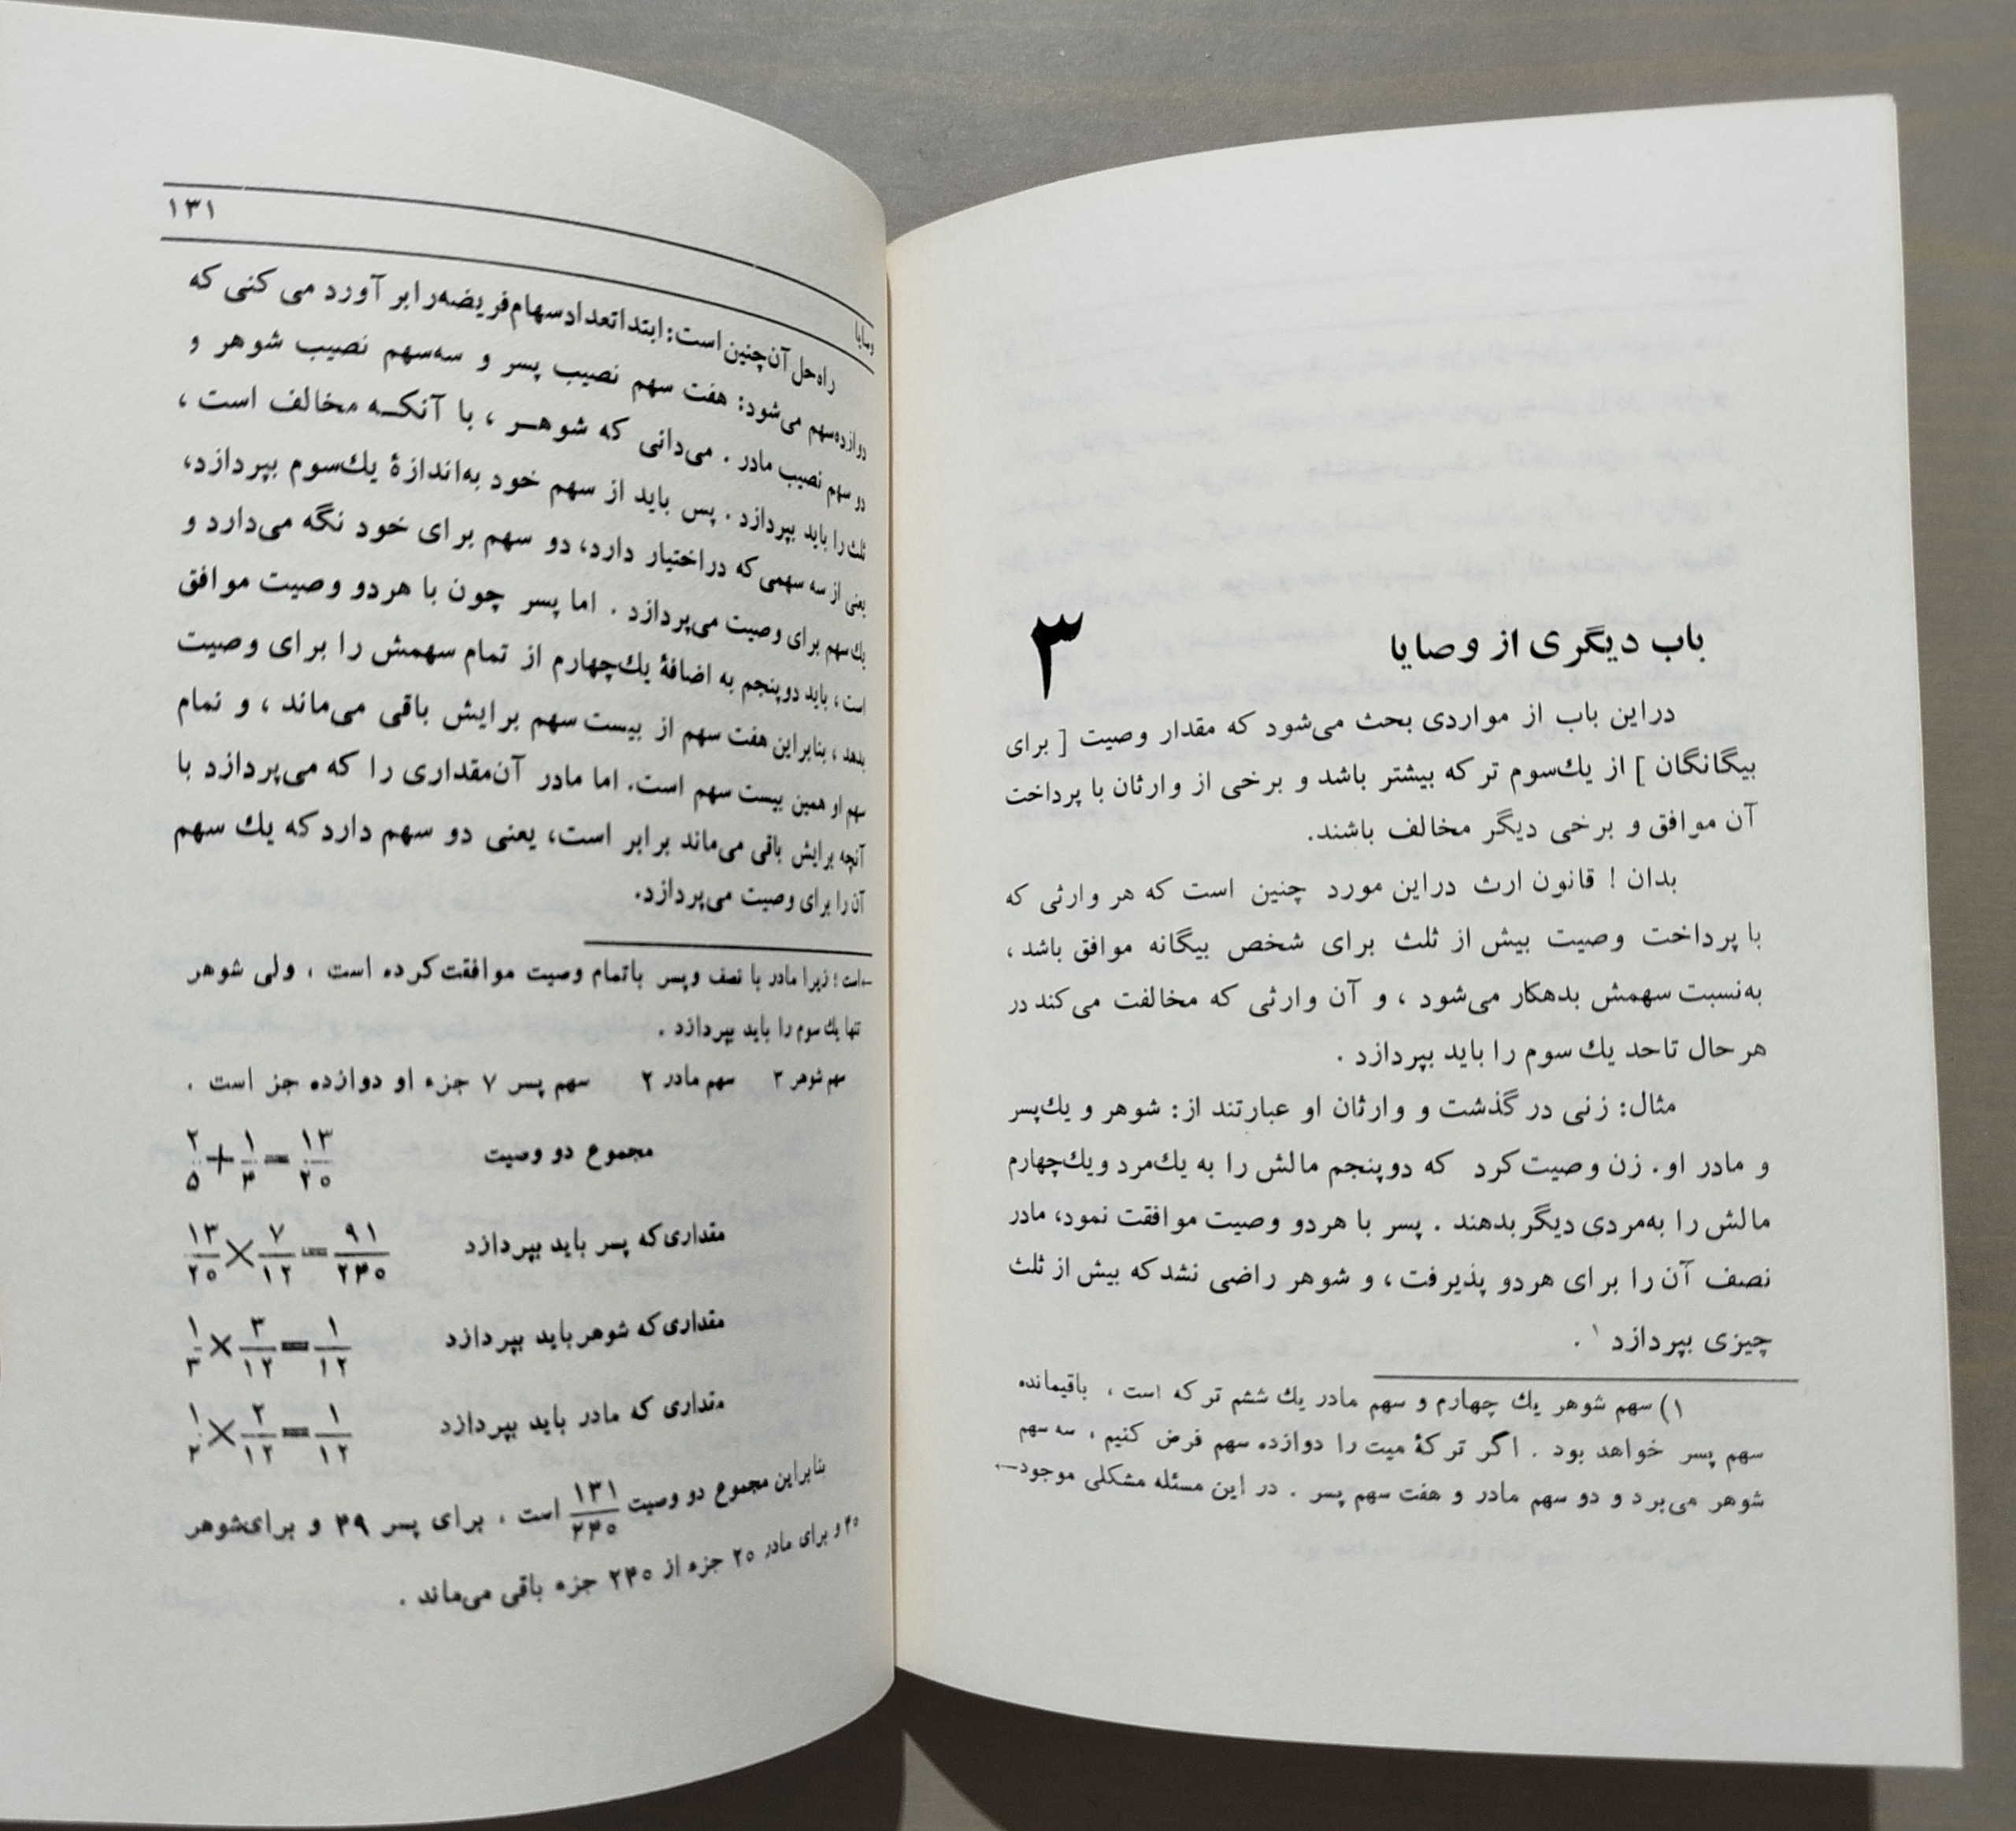 باب دیگری از وصایا
۳
دراین باب از مواردی بحث می‌شود که مقدار وصیت [ برای
بیگانگان ] از یك‌سوم ترکه بیشتر باشد و برخی از وارثان با پرداخت
آن موافق و برخی دیگر مخالف باشند.
بدان ! قانون ارث دراین مورد چنین است که هر وارثی که
با پرداخت وصیت بیش از ثلث برای شخص بیگانه موافق باشد ،
به‌نسبت سهمش بدهکار می‌شود ، و آن وارثی که مخالفت می‌کند در
هر حال تاحد یك سوم را باید بپردازد .
مثال: زنی در گذشت و وارثان او عبارتند از: شوهر و یك‌پسر
و مادر او. زن وصیت‌کرد که دوپنجم مالش را به یك‌مرد ویك‌چهارم
مالش را به‌مردی دیگر بدهند . پسر با هردو وصیت موافقت نمود، مادر
نصف آن را برای هردو پذیرفت ، و شوهر راضی نشدکه بیش از ثلث
چیزی بپردازد ۱ .
۱) سهم شوهر یك چهارم و سهم مادر یك ششم ترکه است ، باقیمانده
سهم پسر خواهد بود . اگر ترکهٔ میت را دوازده سهم فرض کنیم ، سه سهم
شوهر می‌برد و دو سهم مادر و هفت سهم پسر . در این مسئله مشکلی موجود←
وصایا
۱۳۱
راه‌حل آن‌چنین است: ابتداتعداد سهام‌فریضه‌را بر آورد می کنی که
دوازده‌سهم می‌شود: هفت سهم نصیب پسر و سه‌سهم نصیب شوهر و
دو سهم نصیب مادر . می‌دانی که شوهر ، با آنکه مخالف است ،
ثلث را باید بپردازد . پس باید از سهم خود به‌اندازهٔ یك‌سوم بپردازد،
یعنی از سه سهمی‌که دراختیار دارد، دو سهم برای خود نگه می‌دارد و
یك سهم برای وصیت می‌پردازد . اما پسر چون با هردو وصیت موافق
است ، باید دوپنجم به اضافهٔ یك‌چهارم از تمام سهمش را برای وصیت
بدهد ، بنابراین هفت سهم از بیست سهم برایش باقی می‌ماند ، و تمام
سهم او همین بیست سهم است. اما مادر آن‌مقداری را که می‌پردازد با
آنچه برایش باقی می‌ماند برابر است، یعنی دو سهم دارد که یك سهم
آن را برای وصیت می‌پردازد.
←است ؛ زیرا مادر با نصف وپسر باتمام وصیت موافقت‌کرده است ، ولی شوهر
تنها یك سوم را باید بپردازد .
سهم شوهر ۳ سهم مادر ۲ سهم پسر ۷ جزء او دوازده جز است .
مجموع دو وصیت ۲/۵ + ۱/۴ = ۱۳/۲۰
مقداری‌که پسر باید بپردازد ۱۳/۲۰ × ۷/۱۲ = ۹۱/۲۴۰
مقداری‌که شوهر باید بپردازد ۱/۳ × ۳/۱۲ = ۱/۱۲
مقداری که مادر باید بپردازد ۱/۲ × ۲/۱۲ = ۱/۱۲
بنابراین مجموع دو وصیت ۱۳۱/۲۴۰ است ، برای پسر ۴۹ و برای‌شوهر
۴۰ و برای مادر ۲۰ جزء از ۲۴۰ جزء باقی می‌ماند .